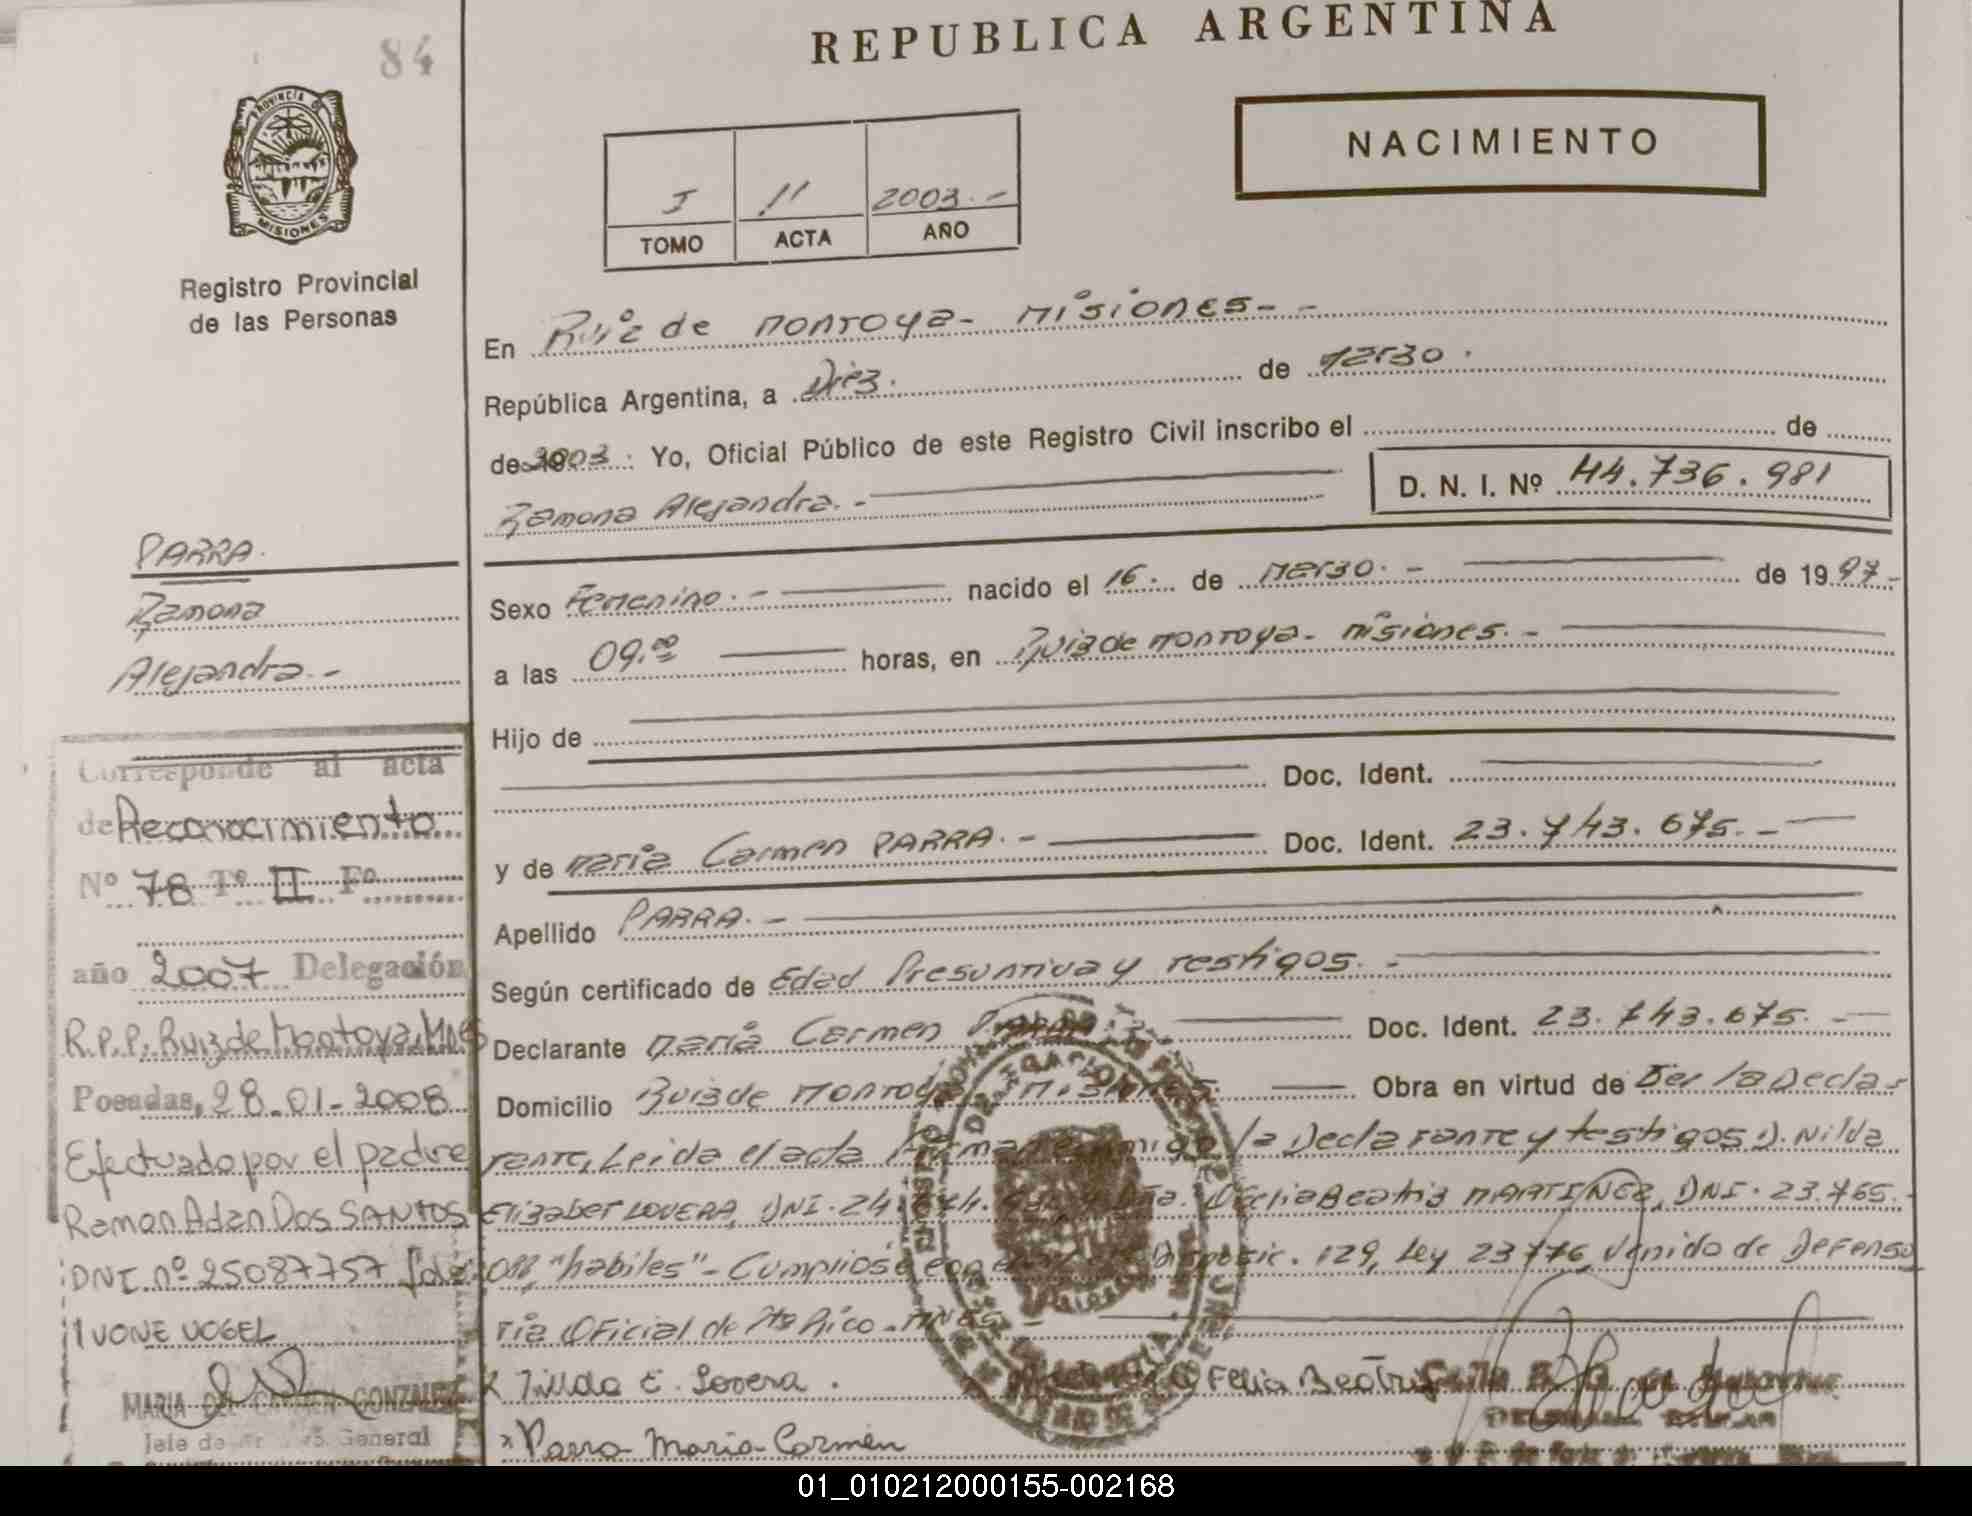 84
REPUBLICA ARGENTINA
PROVINCIA DE
MISIONES
NACIMIENTO
I 11 2003.-
TOMO ACTA AÑO
Registro Provincial
de las Personas
En Ruiz de Montoya - Misiones - -
República Argentina, a Diez. de Marzo.
de 2003. Yo, Oficial Público de este Registro Civil inscribo el de
Ramona Alejandra.- D. N. I. Nº 44.736.981
PARRA.
Ramona
Alejandra.-
Sexo Femenino.- nacido el 16. de Marzo.- de 1997.-
a las 09.00 horas, en Ruiz de Montoya - Misiones.-
Hijo de
Doc. Ident.
y de Maria Carmen PARRA.- Doc. Ident. 23.743.675.-
Apellido PARRA.-
Según certificado de Edad Presuntiva y testigos.-
Declarante Maria Carmen Doc. Ident. 23.743.675.-
Domicilio Ruiz de Montoya Misiones. Obra en virtud de Ser la Decla-
rante, Leida el acta la Declarante y testigos D. Nilda
Elizabet LOVERA, DNI. 24. Ofelia Beatriz MARTINEZ, DNI. 23.765.
"habiles" - Cumpliose con Disposic. 129, Ley 23776, Venido de Defenso
ria Oficial de Pto Rico - MNES -
Lovera.
Ofelia Beatriz
x Parra Maria Carmen
Corresponde al acta
de Reconocimiento
Nº 78 Tº II Fº
año 2007 Delegación
R.P.P. Ruiz de Montoya, Mnes
Posadas, 28.01-2008
Efectuado por el padre
Ramon Adan Dos SANTOS
DNI nº 25087757
IVONE VOGEL
MARIA DEL CARMEN GONZALEZ
Jefe de General
01_010212000155-002168